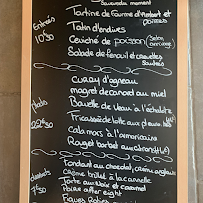 Saucisson du moment
Tartine de fourme d'Ambert et
poires
Entrées
Tatin d'endives
10€50
Ceviche de poisson (selon
arrivage)
Salade de fenouil et crevettes
Curry d'agneau
magret de canard au miel
Plats
Bavette de Veau à l'échalote
Fricassée de lotte aux
22€50
Calamars à l'armoricaine
Rouget barbet
Fondant au chocolat, crème anglaise
Crème brûlée à la vanille
Tarte aux noix et caramel
7€50
Poire after eight
Figues